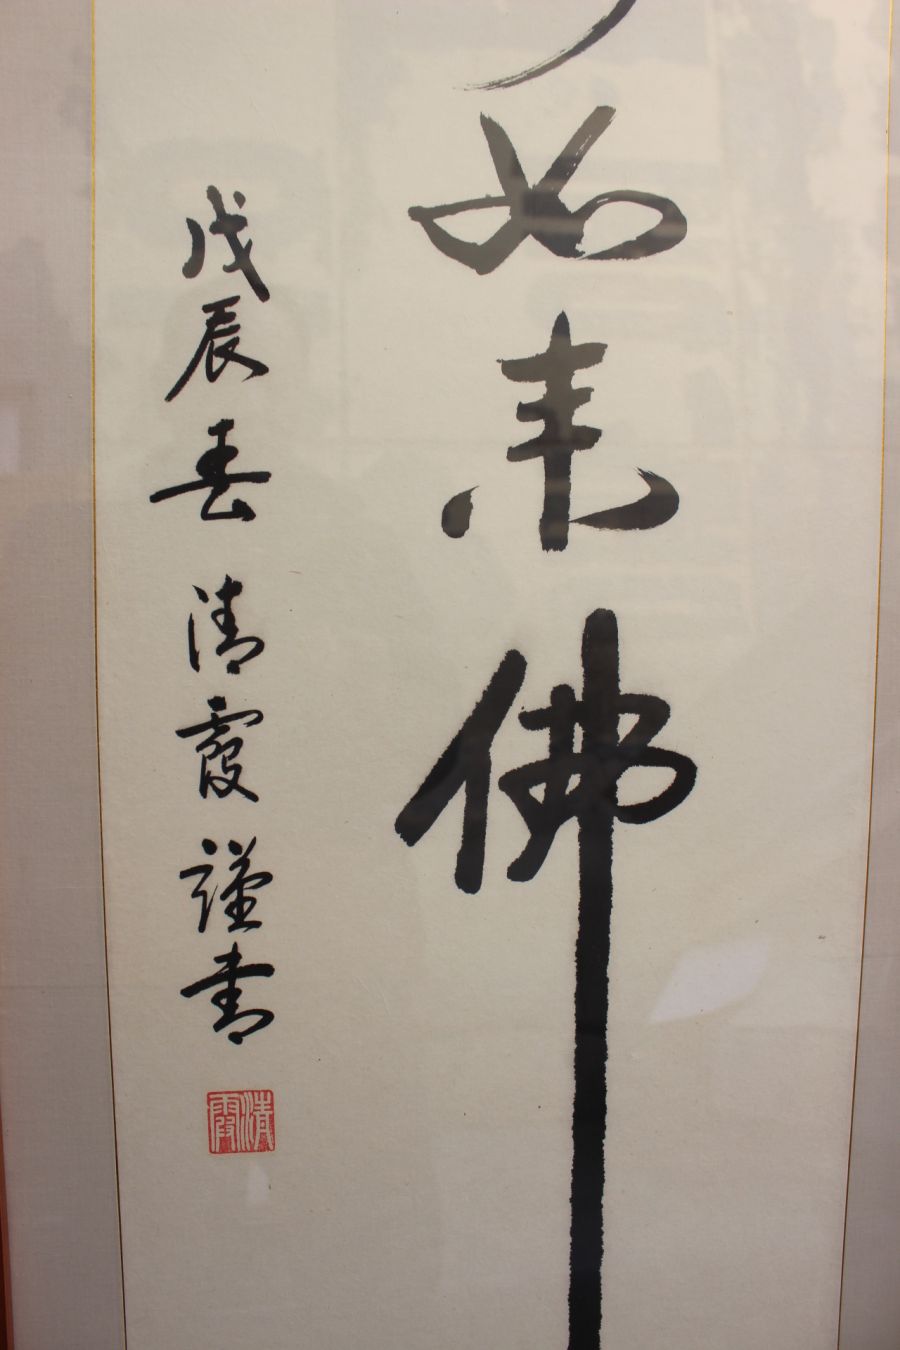 如来佛
戊辰春 清霞謹書
清霞